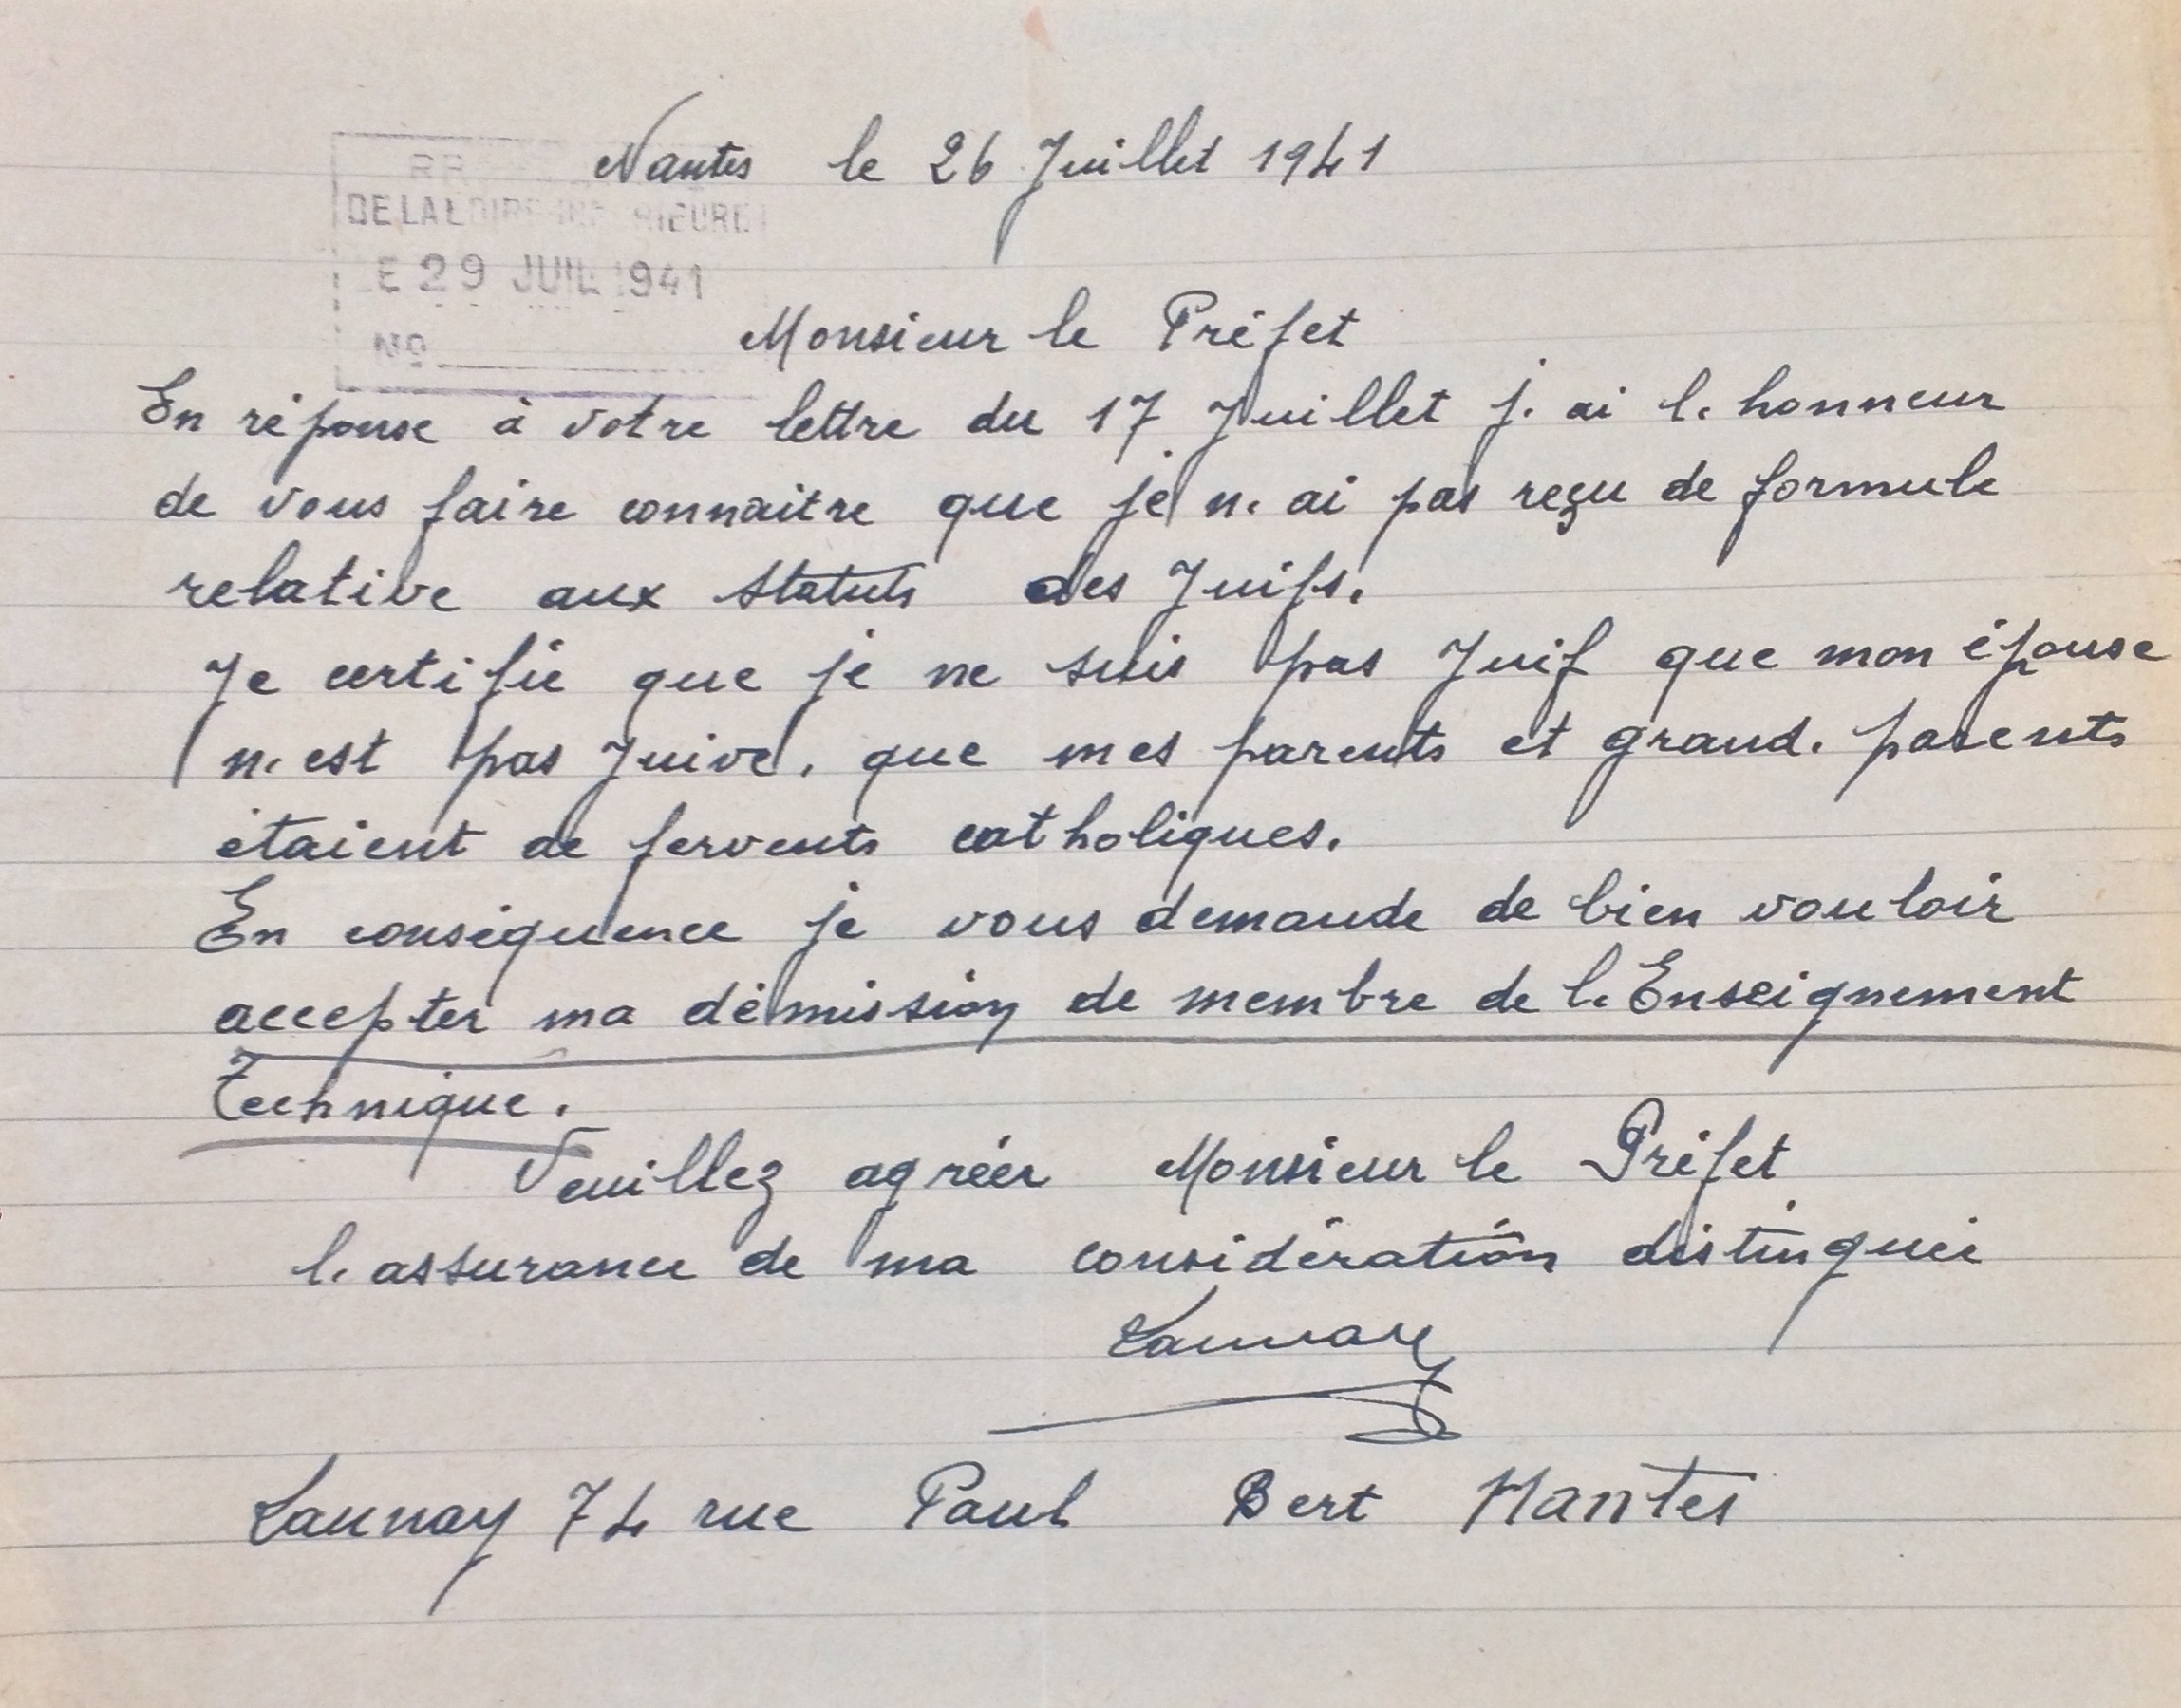 Nantes le 26 Juillet 1941
DE LA LOIRE-INFERIEURE
LE 29 JUIL 1941
No
Monsieur le Préfet
En réponse à votre lettre du 17 Juillet j'ai l'honneur
de vous faire connaitre que je n'ai pas reçu de formule
relative aux Statuts des Juifs.
Je certifie que je ne suis pas Juif que mon épouse
n'est pas Juive, que mes parents et grand-parents
étaient de fervents catholiques.
En conséquence je vous demande de bien vouloir
accepter ma démission de membre de l'Enseignement
Technique.
Veuillez agréer Monsieur le Préfet
l'assurance de ma considération distinguée
Launay
Launay 74 rue Paul Bert Nantes